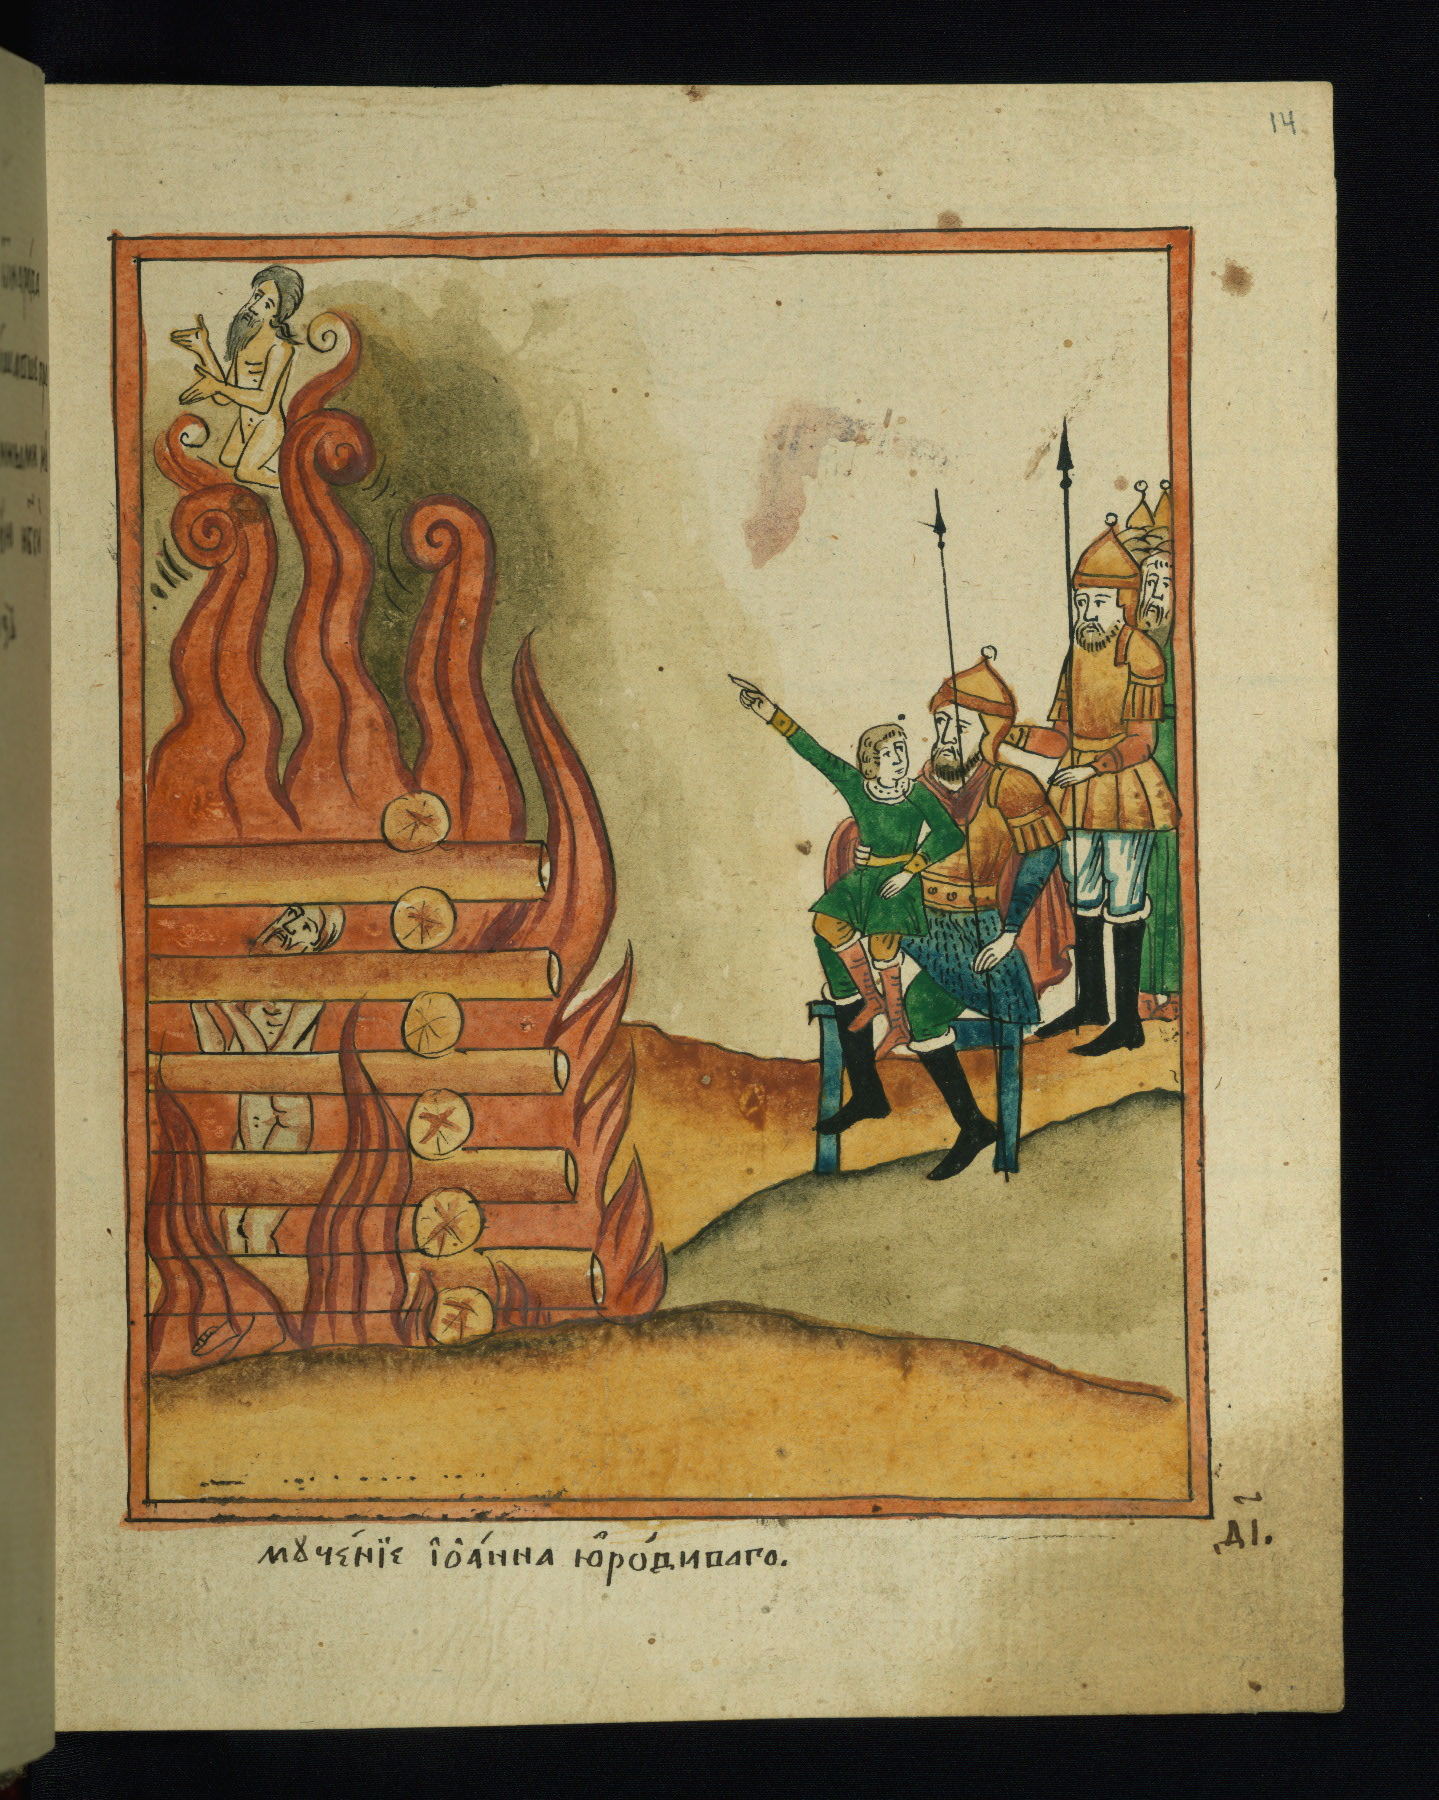 14
мꙋче́нїе і҆ѡа́нна ю҆ро́диваго.
д҃і.